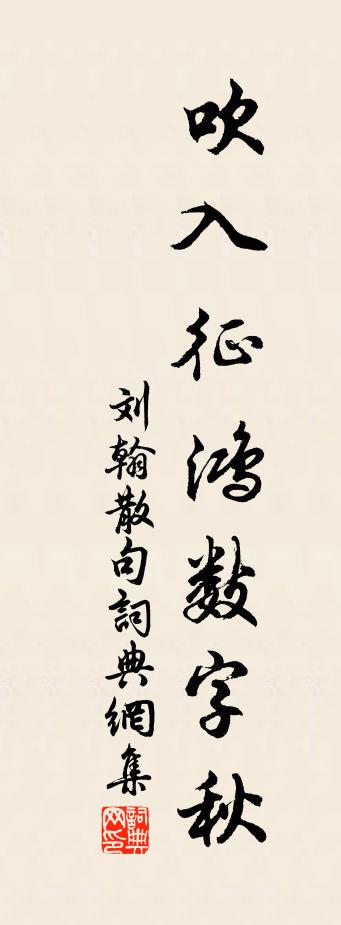 吹入征鸿数字秋
刘翰散句詞典網集
詞典网印